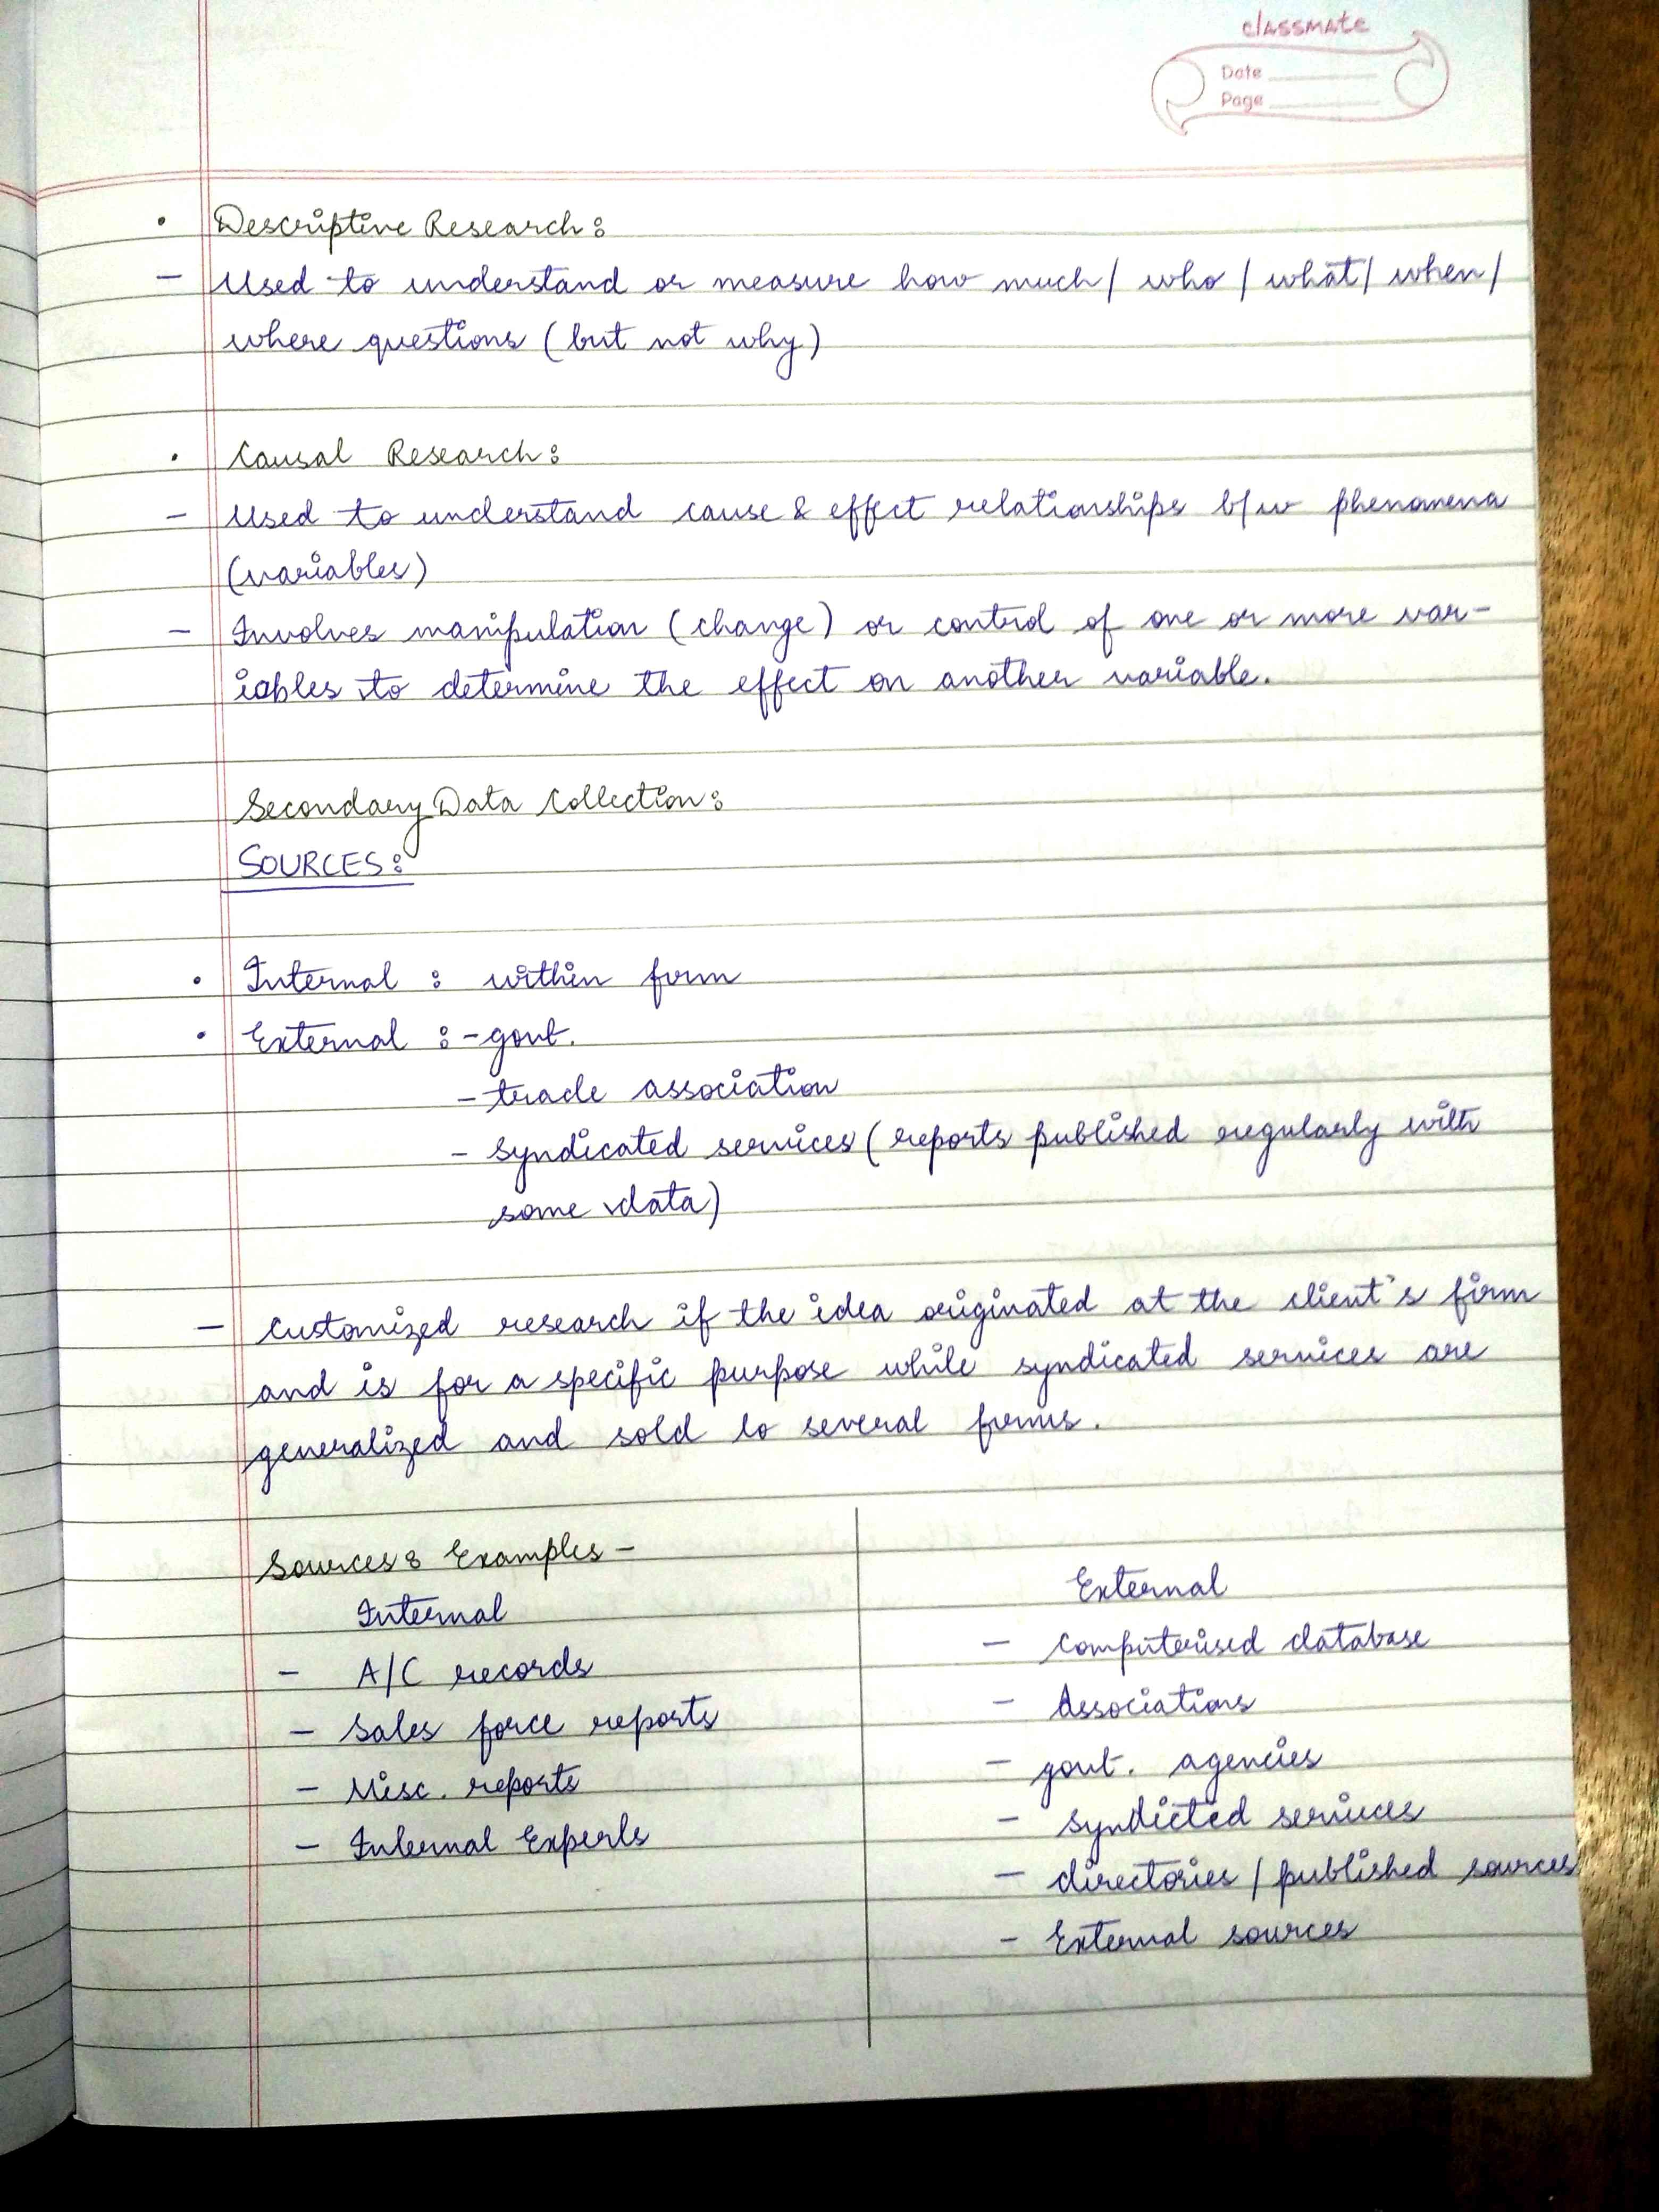 classmate
Date
Page
• Descriptive Research:
– Used to understand or measure how much / who / what / when /
where questions (but not why)
• Causal Research:
– Used to understand cause & effect relationships b/w phenomena
(variables)
– Involves manipulation (change) or control of one or more var-
iables to determine the effect on another variable.
Secondary Data Collection:
SOURCES:
• Internal : within firm
• External : - govt.
- trade association
- syndicated services (reports published regularly with
some data)
– Customized research if the idea originated at the client's firm
and is for a specific purpose while syndicated services are
generalized and sold to several firms.
Sources & Examples –
Internal
– A/C records
– Sales force reports
– Misc. reports
– Internal Experts
External
– Computerised database
– Associations
– govt. agencies
– Syndicted services
– directories / published sources
– External sources